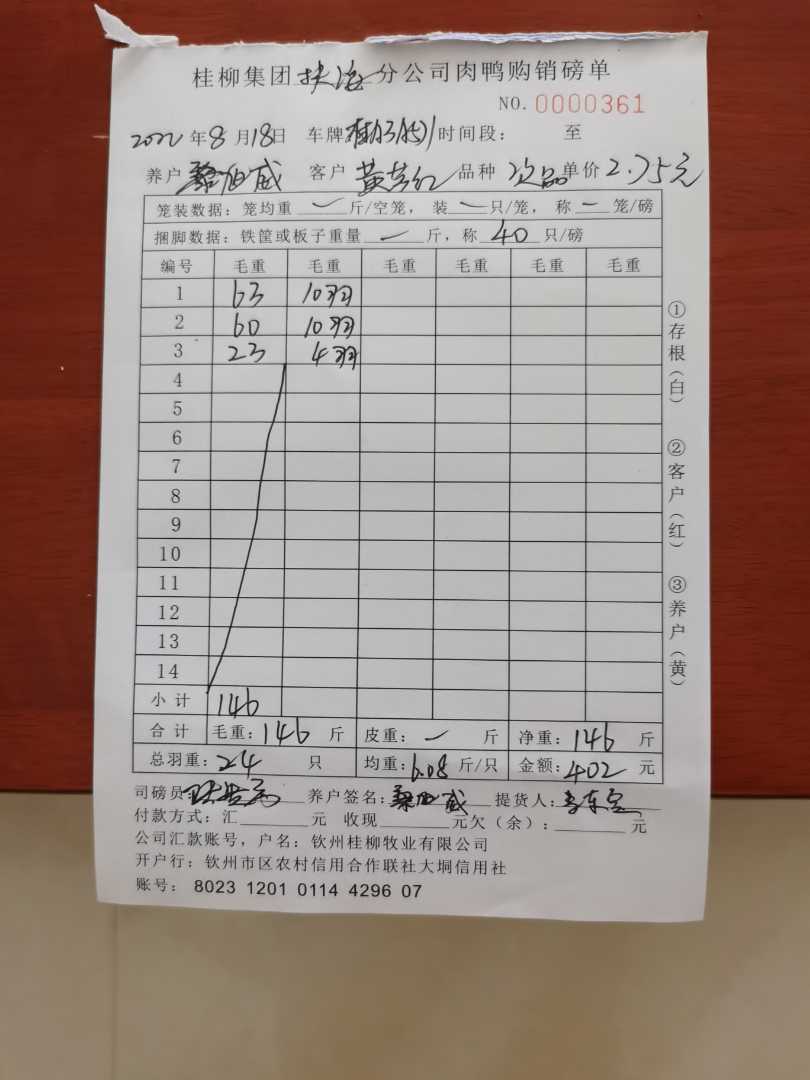 桂柳集团 扶 分公司肉鸭购销磅单
NO. 0000361
2022年8月18日 车牌 时间段： 至
养户 威 客户 黄 红 品种 次品 单价 2.75元
笼装数据：笼均重 一 斤/空笼，装 一 只/笼，称 一 笼/磅
捆脚数据：铁筐或板子重量 一 斤，称 40 只/磅
编号 毛重 毛重 毛重 毛重 毛重 毛重
1 63 10羽
2 60 10羽
3 23 4羽
4
5
6
7
8
9
10
11
12
13
14
小计 146
合计 毛重：146 斤 皮重：一 斤 净重：146 斤
总羽重：24 只 均重：6.08 斤/只 金额：402 元
司磅员： 养户签名： 威 提货人： 李东
付款方式：汇 元 收现 元欠（余）： 元
公司汇款账号，户名：钦州桂柳牧业有限公司
开户行：钦州市区农村信用合作联社大垌信用社
账号：8023 1201 0114 4296 07
①存根（白） ②客户（红） ③养户（黄）